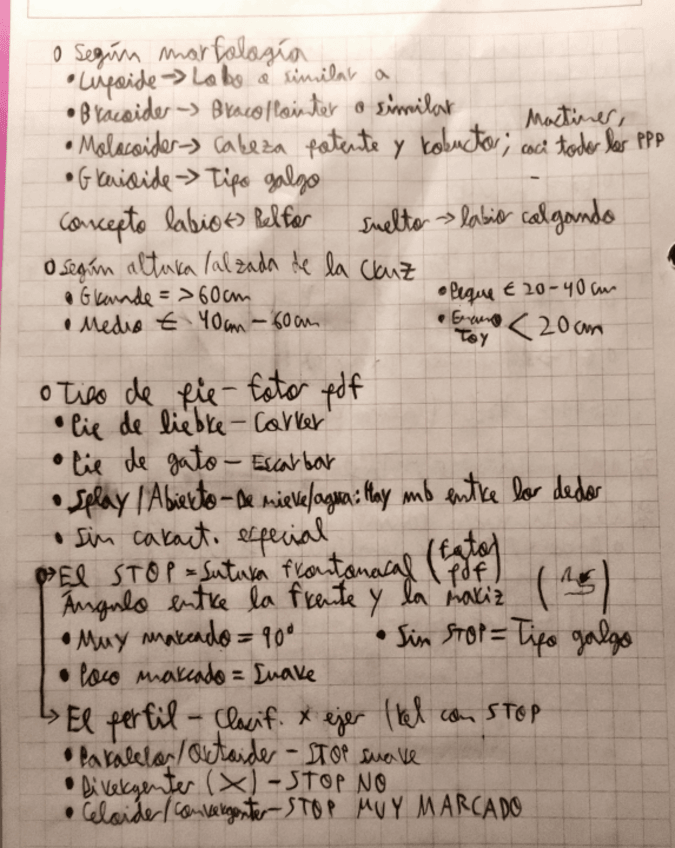 o Según morfología
• Lupoide → Lobo o similar a
• Bracoides → Braco/Pointer o similar
• Molosoides → Cabeza potente y robustos; Mastines, casi todos los PPP
• Graioide → Tipo galgo
Concepto labio ↔ Belfos    suelto → labios colgando
o Según altura/alzada de la cruz
• Grande = > 60cm    • Peque ∈ 20-40 cm
• Medio ∈ 40cm - 60cm    • Enano Toy < 20 cm
o Tipo de pie - fotos pdf
• Pie de liebre - Correr
• Pie de gato - Escarbar
• Splay/Abierto - De nieve/agua: Hay mb entre los dedos
• Sin caract. especial
→ El STOP = Sutura frontonasal (fotos pdf)
Ángulo entre la frente y la nariz
• Muy marcado = 90º    • Sin STOP = Tipo galgo
• Poco marcado = Suave
→ El perfil - Clasif. x ejes / Rel con STOP
• Paralelos/Ortoides - STOP suave
• Divergentes (X) - STOP NO
• Celoides/convergentes - STOP MUY MARCADO